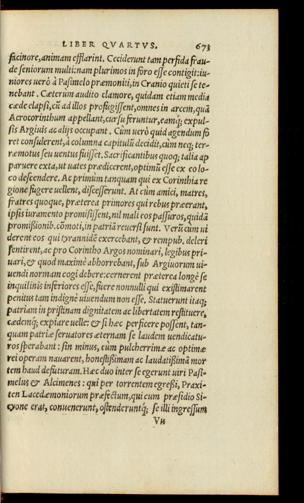 LIBER QVARTVS. 673
facinore, animam efflarint. Ceciderunt tam perfida frau-
de seniorum multi: nam plurimos in foro esse contigit: iu-
niores uerò à Pasimelo præmoniti, in Cranio quieti se te-
nebant. Cæterùm audito clamore, quidam etiam media
cæde elapsi, cū ad illos profugissent, omnes in arcem, quã
Acrocorinthum appellant, cursu feruntur, eamq; expul-
sis Argiuis ac alijs occupant. Cùm uerò quid agendum fo
ret consulerent, à columna capitulũ decidit, cùm neq; ter-
ræmotus seu uentus fuisset. Sacrificantibus quoq; talia ap
paruere exta, ut uates prædicerent, optimũ esse ex eo lo-
co descendere. Ac primùm tanquam qui ex Corinthia re
gione fugere uellent, discesserunt. At cùm amici, matres,
fratres quoque, præterea primores qui rebus præerant,
ipsis iuramento promisissent, nil mali eos passuros, quidã
promissionib. cõmoti, in patriã reuersi sunt. Verũ cùm ui
derent eos qui tyrannidẽ exercebant, & rempub. deleri
sentirent, ac pro Corintho Argos nominari, legibus pri-
uari, & quod maximè abhorrebant, sub Argiuorum ui-
uendi normam cogi debere: cernerent præterea longè se
inquilinis inferiores esse, fuere nonnulli qui existimarent
penitus tam indignè uiuendum non esse. Statuerunt itaq;
patriam in pristinam dignitatem ac libertatem restituere,
cædemq; expiare uelle: & si hæc perficere possent, tan-
quam patriæ seruatores æternam se laudem uendicatu-
ros sperabant: sin minus, cùm pulcherrimæ ac optimæ
rei operam nauarent, honestißimam ac laudatißimã mor
tem haud defuturam. Hæc duo inter se egerunt uiri Pasi-
melus & Alcimenes: qui per torrentem egreßi, Praxi-
ten Lacedæmoniorum præfectum, qui cum præsidio Si-
cyone erat, conuenerunt, ostenderuntq́; se illi ingressum
Vu